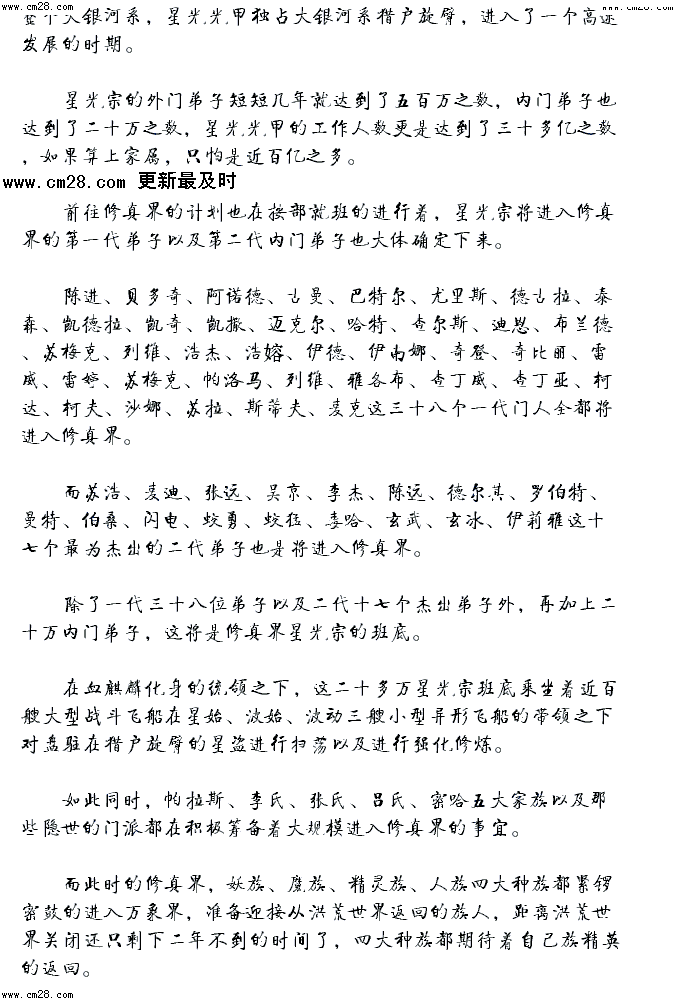 www.cm28.com www.cm28.com
整个大银河系，星光光甲独占大银河系猎户旋臂，进入了一个高速
发展的时期。
星光宗的外门弟子短短几年就达到了五百万之数，内门弟子也
达到了二十万之数，星光光甲的工作人数更是达到了三十多亿之数
，如果算上家属，只怕是近百亿之多。
www.cm28.com 更新最及时
前往修真界的计划也在按部就班的进行着，星光宗将进入修真
界的第一代弟子以及第二代内门弟子也大体确定下来。
陈进、贝多奇、阿诺德、古曼、巴特尔、尤里斯、德古拉、泰
森、凯德拉、凯奇、凯撒、迈克尔、哈特、查尔斯、迪恩、布兰德
、苏梅克、列维、浩杰、浩嫆、伊德、伊南娜、奇登、奇比丽、雷
威、雷婷、苏梅克、帕洛马、列维、雅各布、查丁威、查丁亚、柯
达、柯夫、沙娜、苏拉、斯蒂夫、麦克这三十八个一代门人全都将
进入修真界。
而苏浩、麦迪、张远、吴京、李杰、陈远、德尔其、罗伯特、
曼特、伯桑、闪电、蛟勇、蛟狂、喜哈、玄武、玄冰、伊莉雅这十
七个最为杰出的二代弟子也是将进入修真界。
除了一代三十八位弟子以及二代十七个杰出弟子外，再加上二
十万内门弟子，这将是修真界星光宗的班底。
在血麒麟化身的统领之下，这二十多万星光宗班底乘坐着近百
艘大型战斗飞船在星始、波始、波动三艘小型异形飞船的带领之下
对盘驻在猎户旋臂的星盗进行扫荡以及进行强化修炼。
如此同时，帕拉斯、李氏、张氏、吕氏、密哈五大家族以及那
些隐世的门派都在积极筹备着大规模进入修真界的事宜。
而此时的修真界，妖族、魔族、精灵族、人族四大种族都紧锣
密鼓的进入万象界，准备迎接从洪荒世界返回的族人，距离洪荒世
界关闭还只剩下二年不到的时间了，四大种族都期待着自己族精英
的返回。
www.cm28.com www.cm28.com